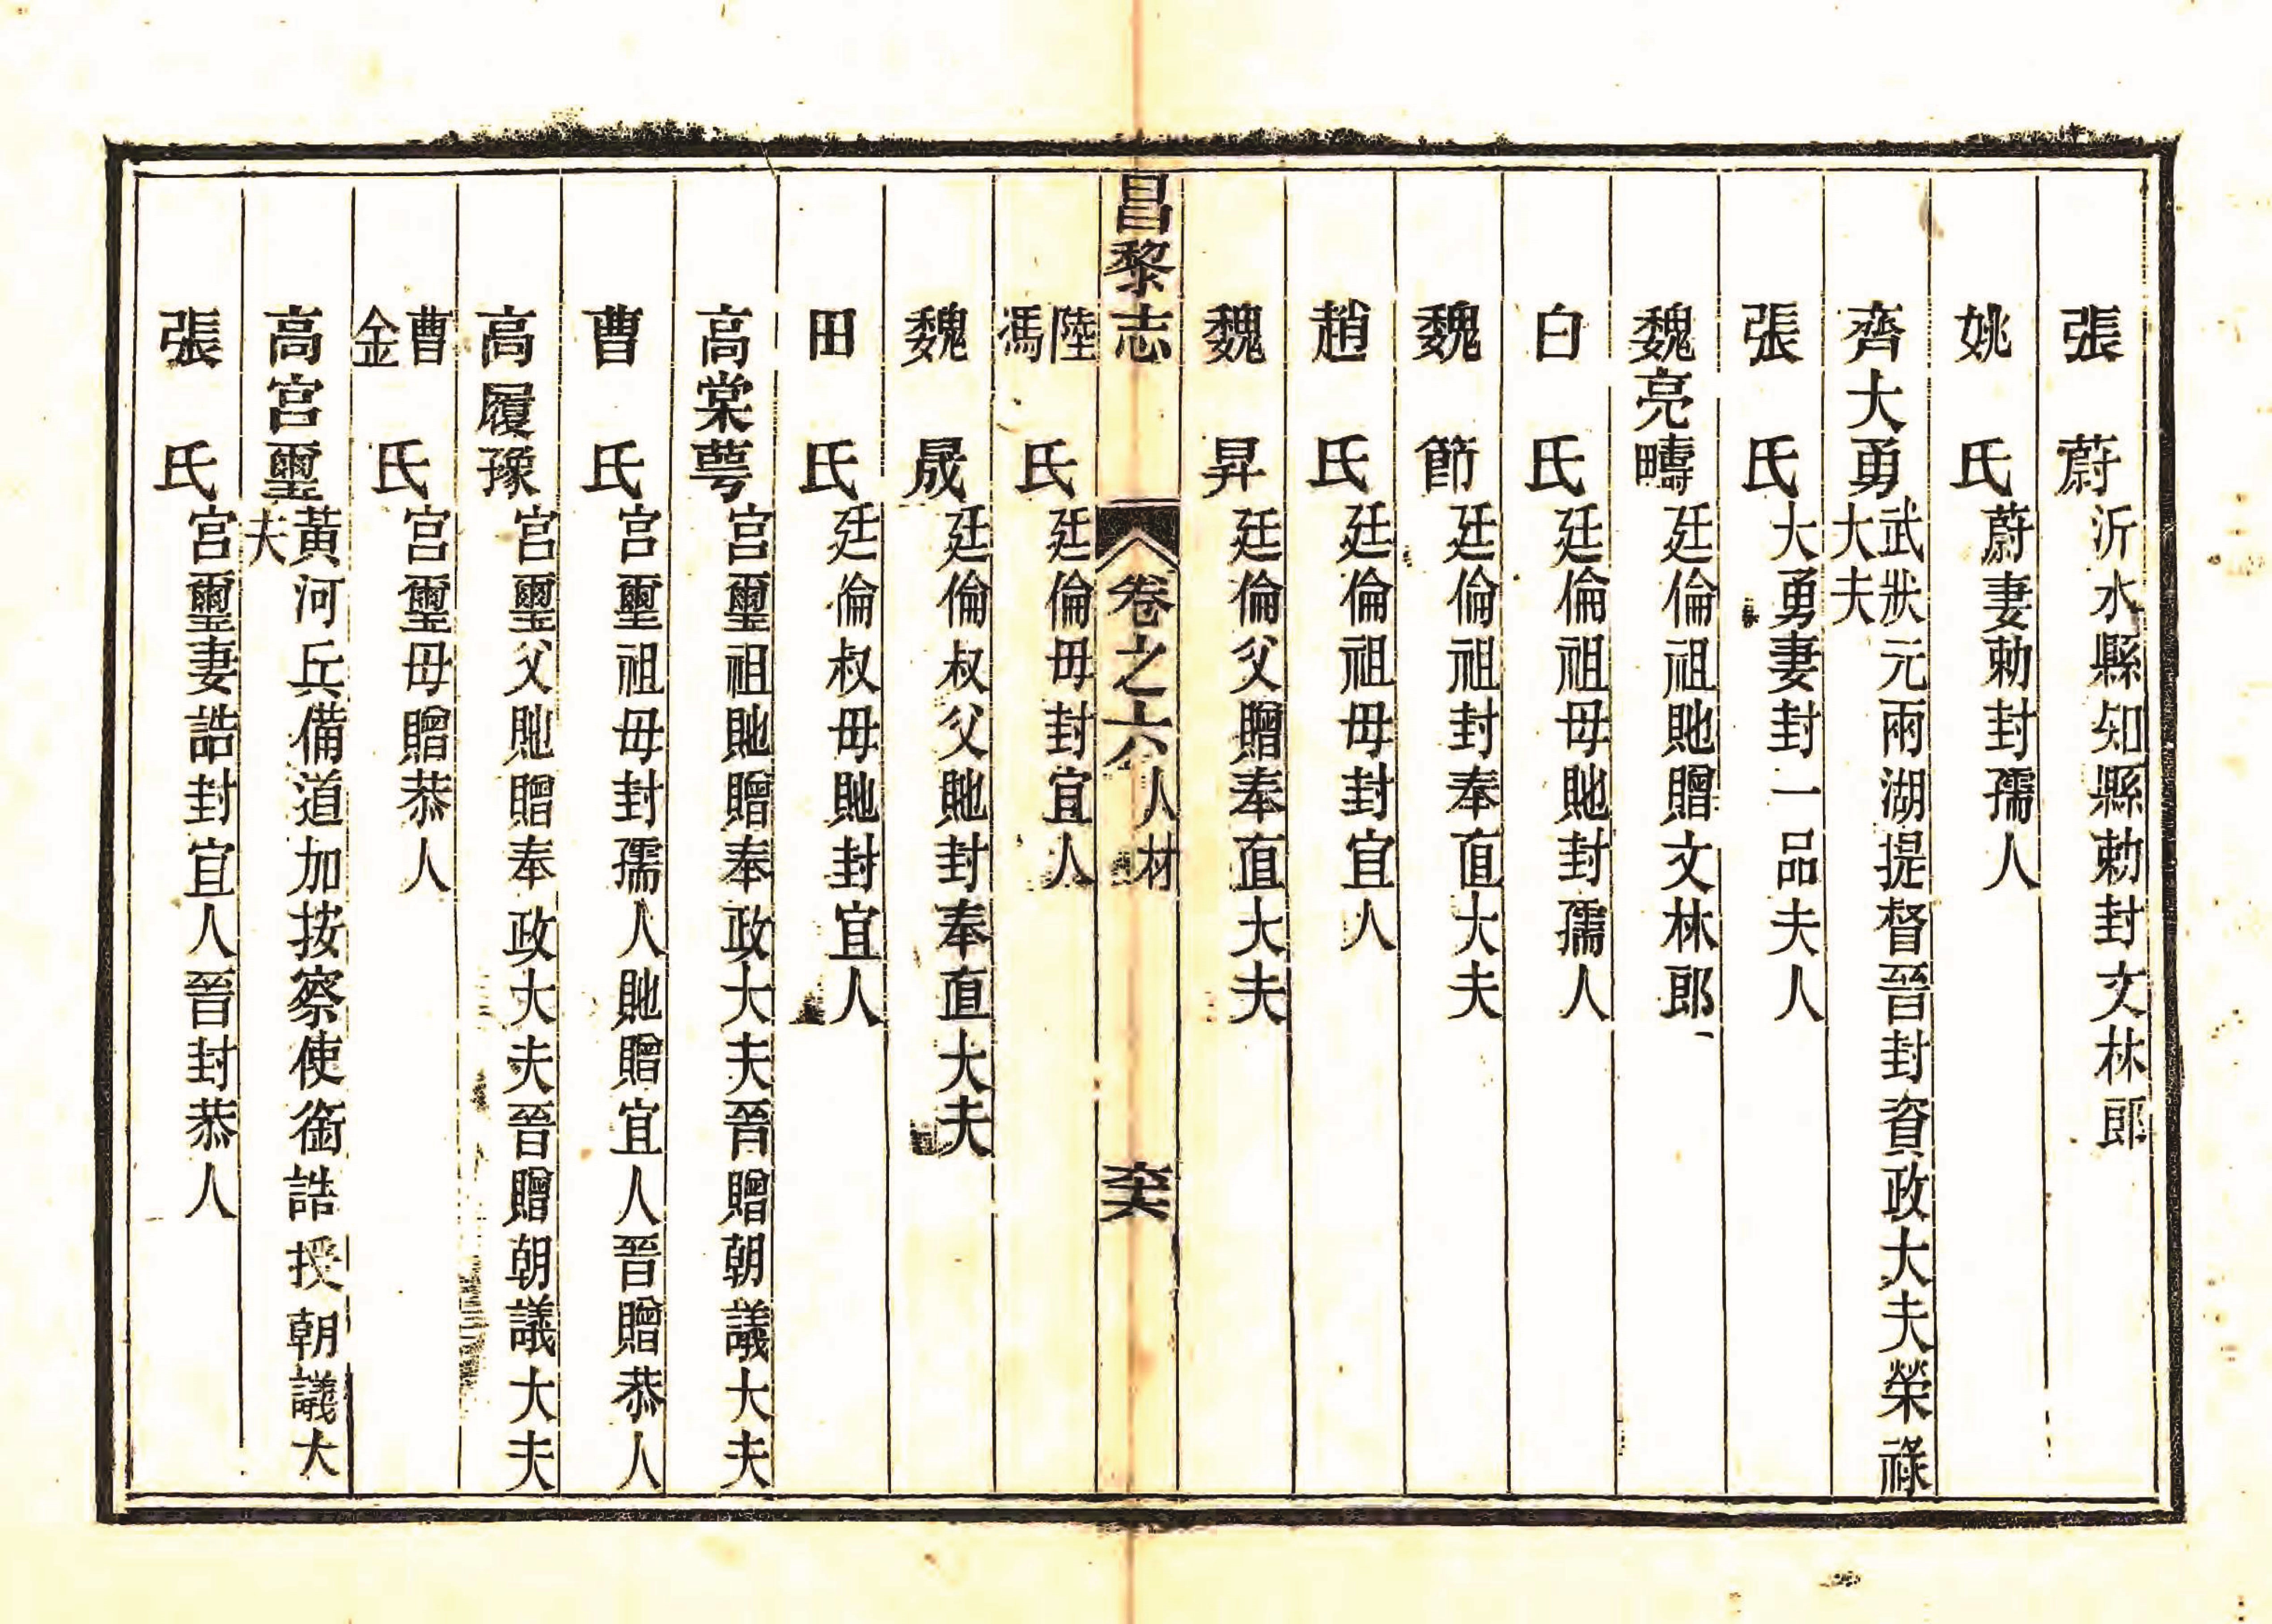 張蔚沂水縣知縣勅封文林郎
姚氏蔚妻勅封孺人
齊大勇武狀元兩湖提督晉封資政大夫榮祿大夫
張氏大勇妻封一品夫人
魏亮疇廷倫祖貤贈文林郎
白氏廷倫祖母貤封孺人
魏節廷倫祖封奉直大夫
趙氏廷倫祖母封宜人
魏昇廷倫父贈奉直大夫
昌黎志 卷之六 人材 六六
陸馮氏廷倫母封宜人
魏晟廷倫叔父貤封奉直大夫
田氏廷倫叔母貤封宜人
高棠萼宮璽祖貤贈奉政大夫晉贈朝議大夫
曹氏宮璽祖母封孺人貤贈宜人晉贈恭人
高履豫宮璽父貤贈奉政大夫晉贈朝議大夫
曹金氏宮璽母贈恭人
高宮璽黃河兵備道加按察使銜誥授朝議大夫
張氏宮璽妻誥封宜人晉封恭人